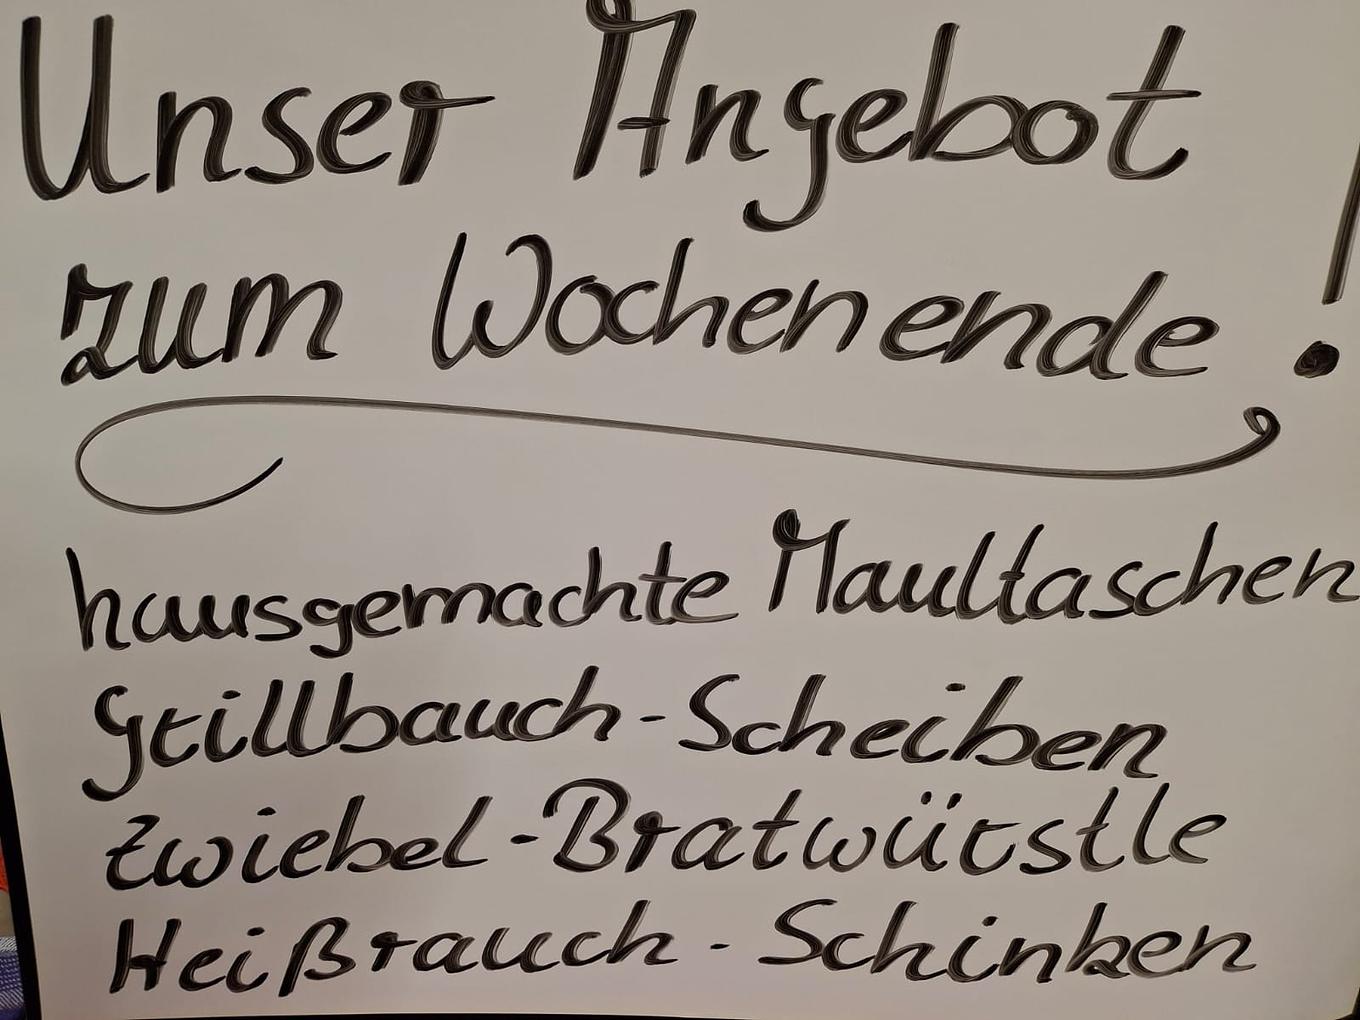 Unser Angebot
zum Wochenende!
hausgemachte Maultaschen
Grillbauch-Scheiben
Zwiebel-Bratwürstle
Heißrauch-Schinken